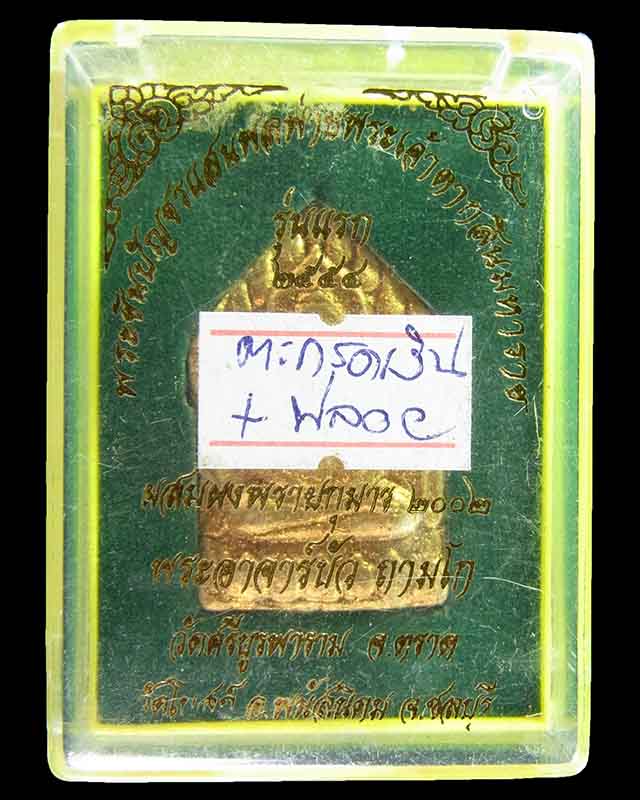 พระขุนแผนพลพ่ายพระเจ้าตากสินมหาราช
รุ่นแรก
๒๕๕๔
ตะกรุดเงิน
+ พลอย
ผสมผงพรายกุมาร ๒๐๐๒
พระอาจารย์บัว ถามโก
วัดศรีบูรพาราม จ.ตราด
อ.พนัสนิคม จ.ชลบุรี